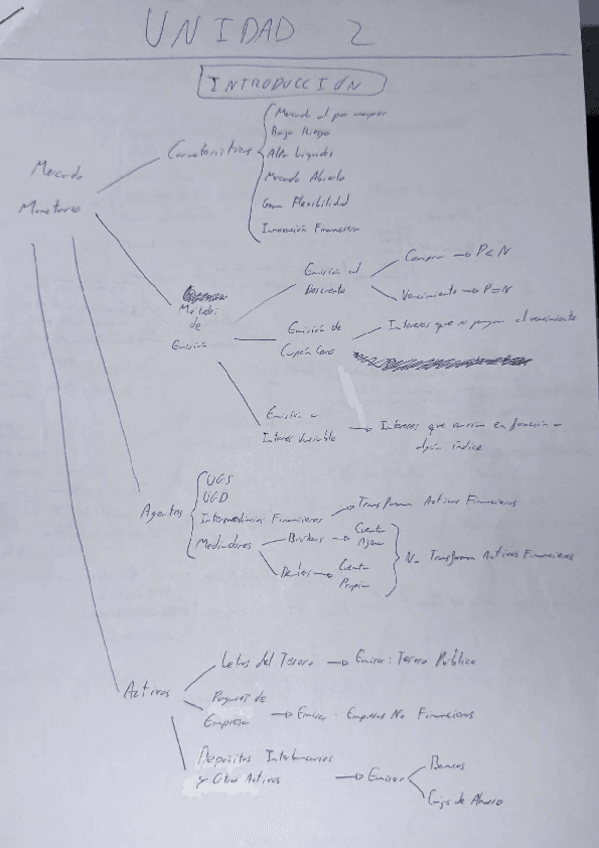 UNIDAD 2
INTRODUCCIÓN
Mercado
Monetario
Características
Mercado al por mayor
Bajo Riesgo
Alta Liquidez
Mercado Abierto
Gran Flexibilidad
Innovación Financiera
Métodos
de
Emisión
Emisión al
Descuento
Comprar → P < N
Vencimiento → P = N
Emisión de
Cupón Cero
Intereses que se pagan al vencimiento
Emisión a
Interes Variable
→ Intereses que varían en función a
algún índice
Agentes
UGS
UGD
Intermediarios Financieros → Transforman Activos Financieros
Mediadores
Brokers → Cuenta
Ajena
Dealers → Cuenta
Propia
No Transforman Activos Financieros
Activos
Letras del Tesoro → Emisor: Tesoro Público
Pagarés de
Empresa → Emisor: Empresas No Financieras
Depósitos Interbancarios
y Otros Activos → Emisor
Bancos
Cajas de Ahorro